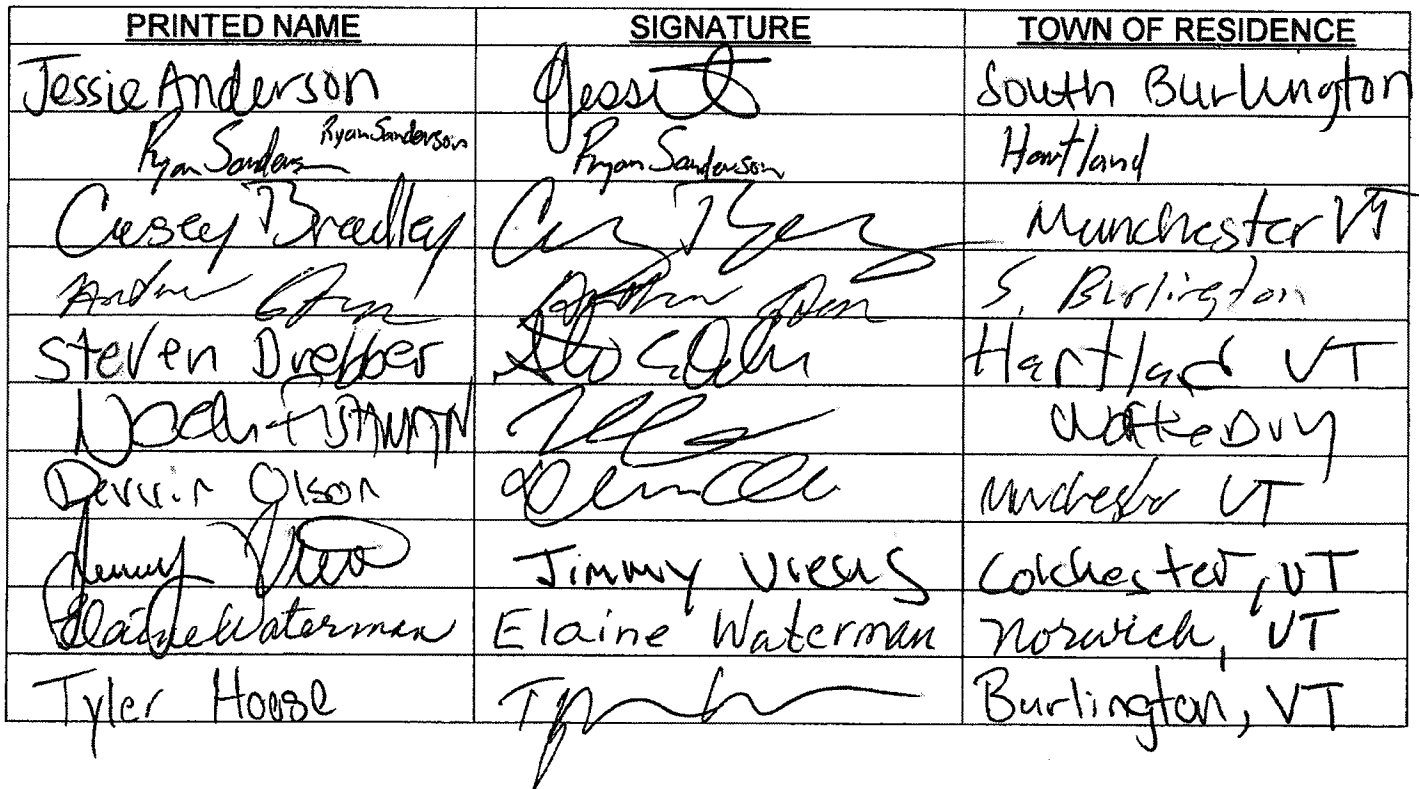 PRINTED NAME SIGNATURE TOWN OF RESIDENCE
Jessie Anderson Jessi South Burlington
Ryan Sanderson Ryan Sanderson Ryan Sanderson Hartland
Casey Bradley Manchester VT
Andrew S. Burlington
Steven Drebber Hartland VT
Noah Fishman Waterbury
Devvin Olson Manchester VT
Jimmy Jimmy Viesus Colchester, VT
Elaine Waterman Elaine Waterman Norwich, VT
Tyler House Burlington, VT